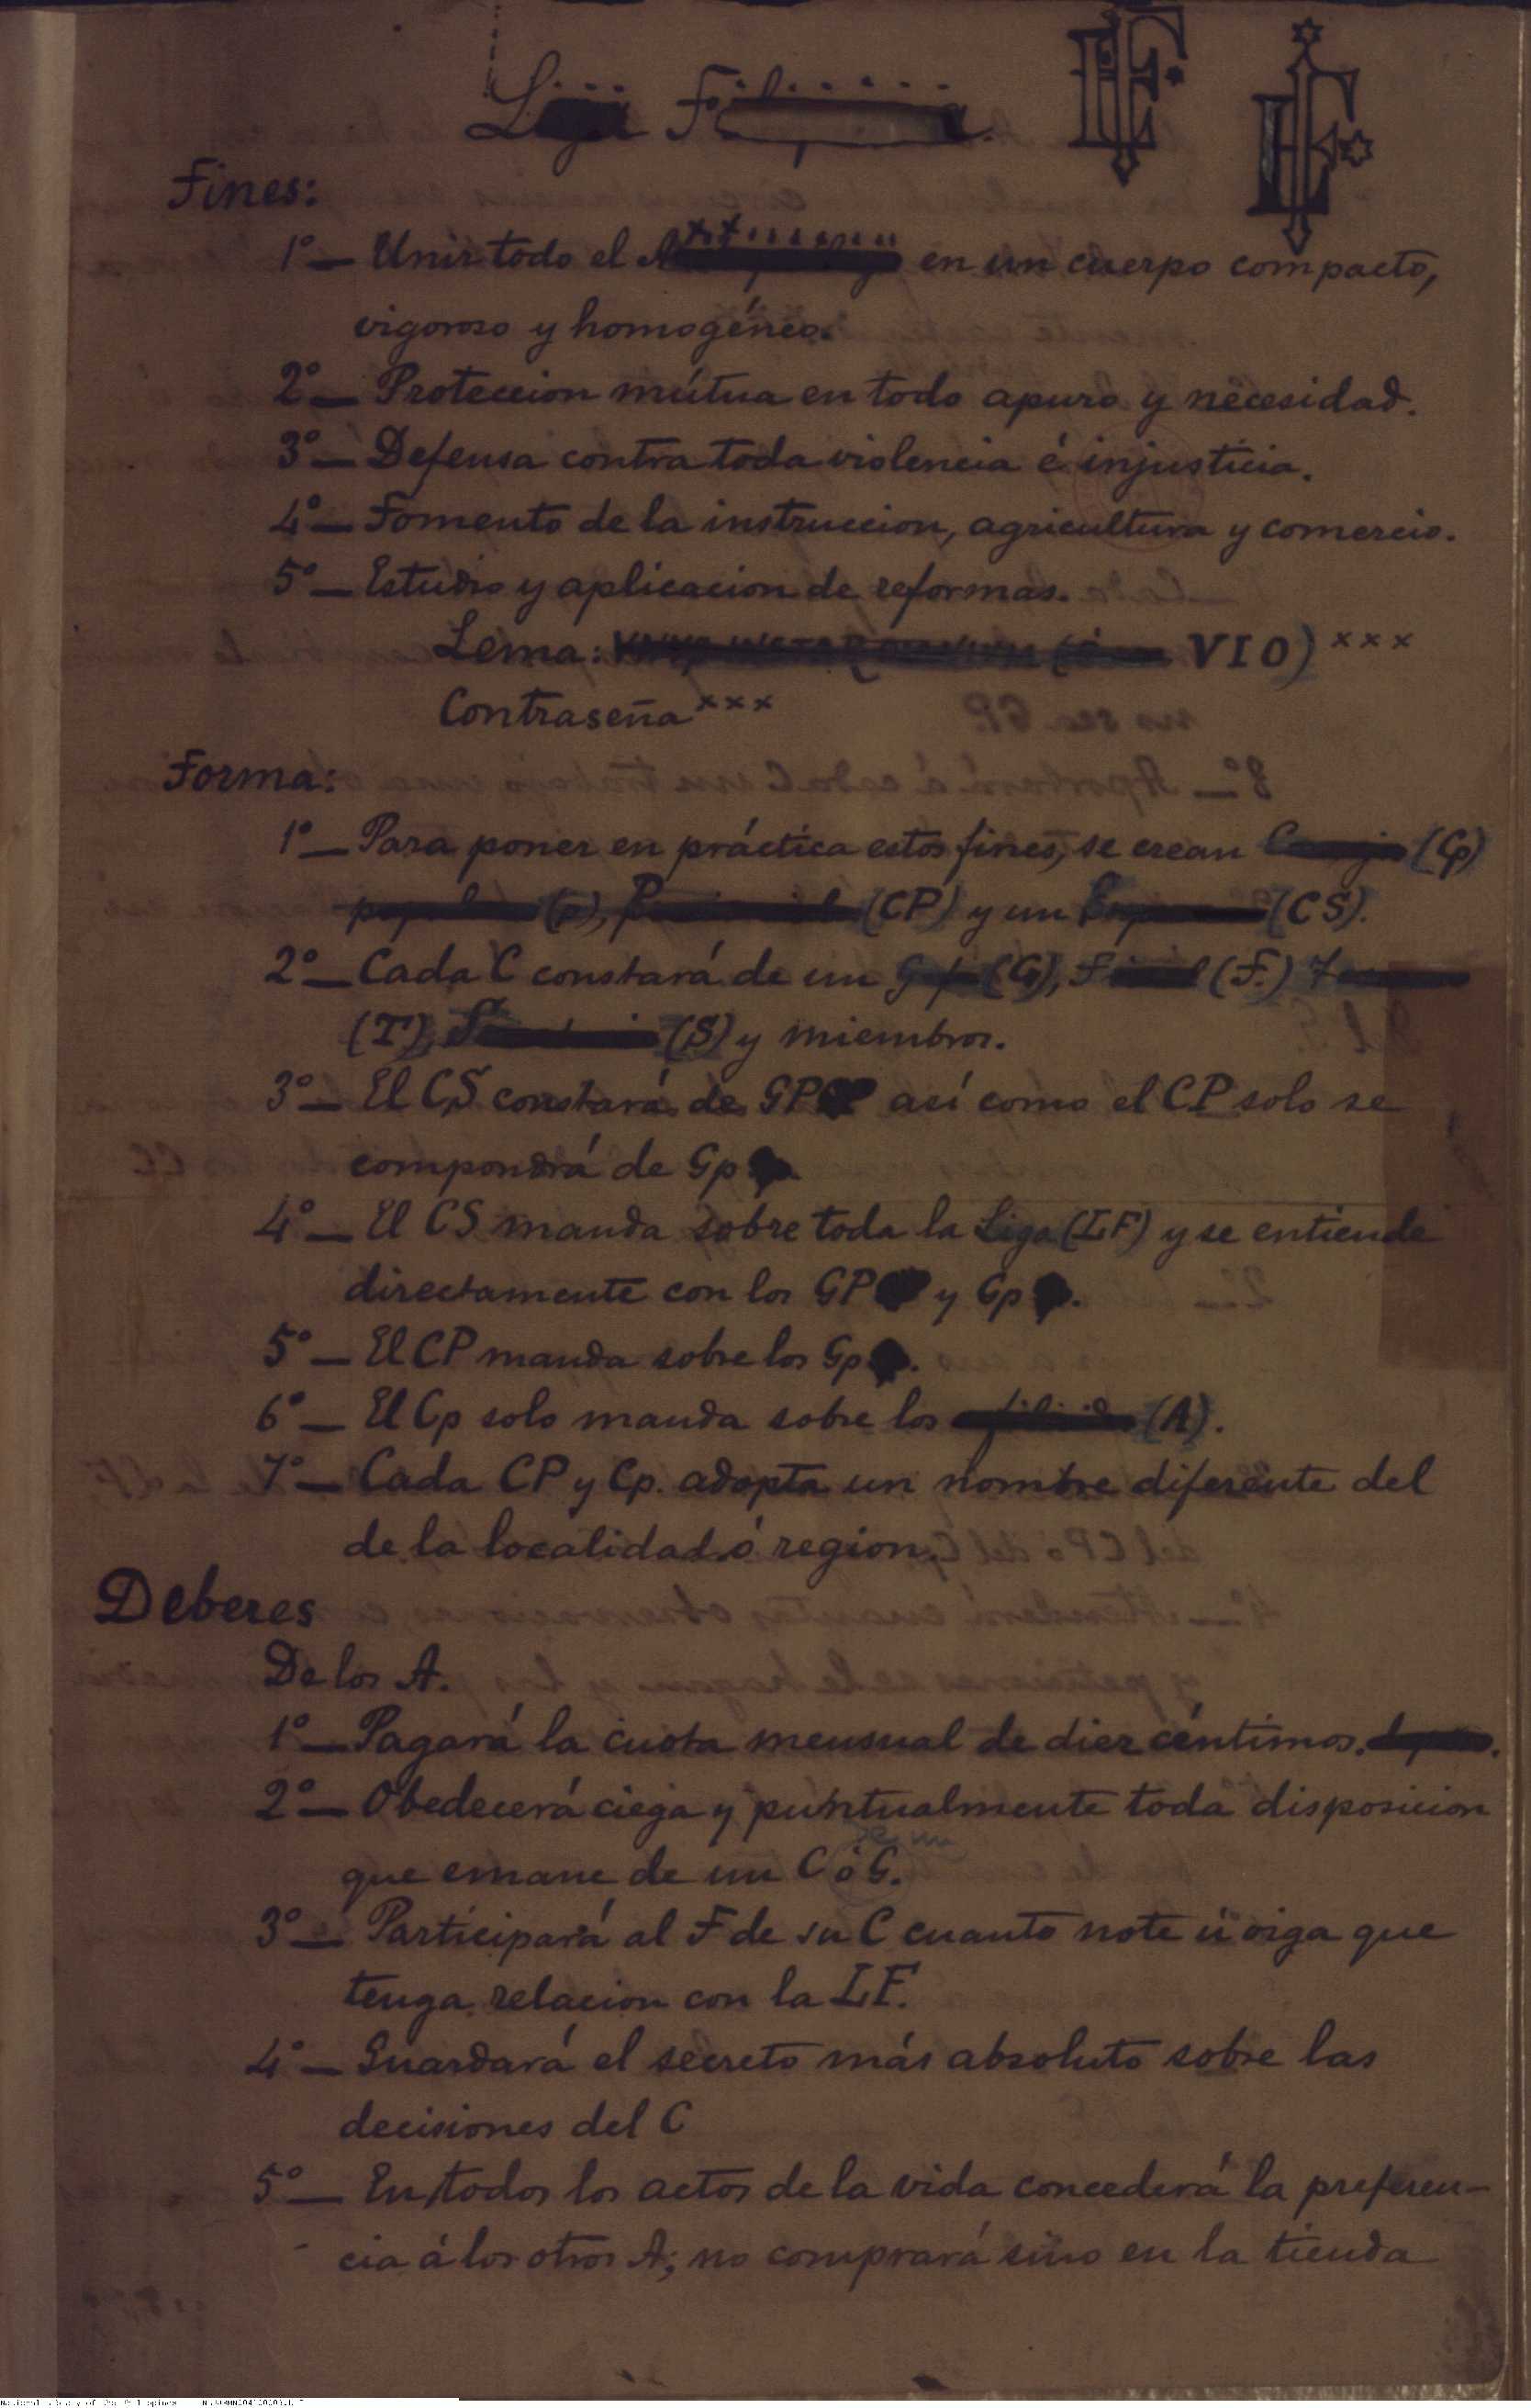 Liga F
LF
LF
Fines:
1º — Unir todo el A en un cuerpo compacto,
vigoroso y homogéneo.
2º — Proteccion mútua en todo apuro y necesidad.
3º — Defensa contra toda violencia é injusticia.
4º — Fomento de la instruccion, agricultura y comercio.
5º — Estudio y aplicacion de reformas.
Lema: VIO) xxx
Contraseña xxx
Forma:
1º — Para poner en práctica estos fines, se crean (Cp)
(p), (CP) y un (CS).
2º — Cada C constará de un (G), (F.)
(T), (S) y miembros.
3º — El CS constará de GP así como el CP solo se
compondrá de Gp
4º — El CS manda sobre toda la Liga (LF) y se entiende
directamente con los GP y Gp.
5º — El CP manda sobre los Gp.
6º — El Cp solo manda sobre los (A).
7º — Cada CP y Cp. adopta un nombre diferente del
de la localidad ó region.
Deberes
De los A.
1º — Pagará la cuota mensual de diez céntimos.
2º — Obedecerá ciega y puntualmente toda disposicion
que emane de un C ó G.
3º — Participará al F de su C cuanto note ú oiga que
tenga relacion con la LF.
4º — Guardará el secreto más absoluto sobre las
decisiones del C
5º — En todos los actos de la vida concederá la preferen-
cia á los otros A; no comprará sino en la tienda